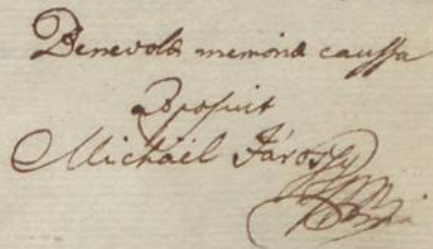 Benevolæ memoriæ caussa
apposuit
Michaël Járossy